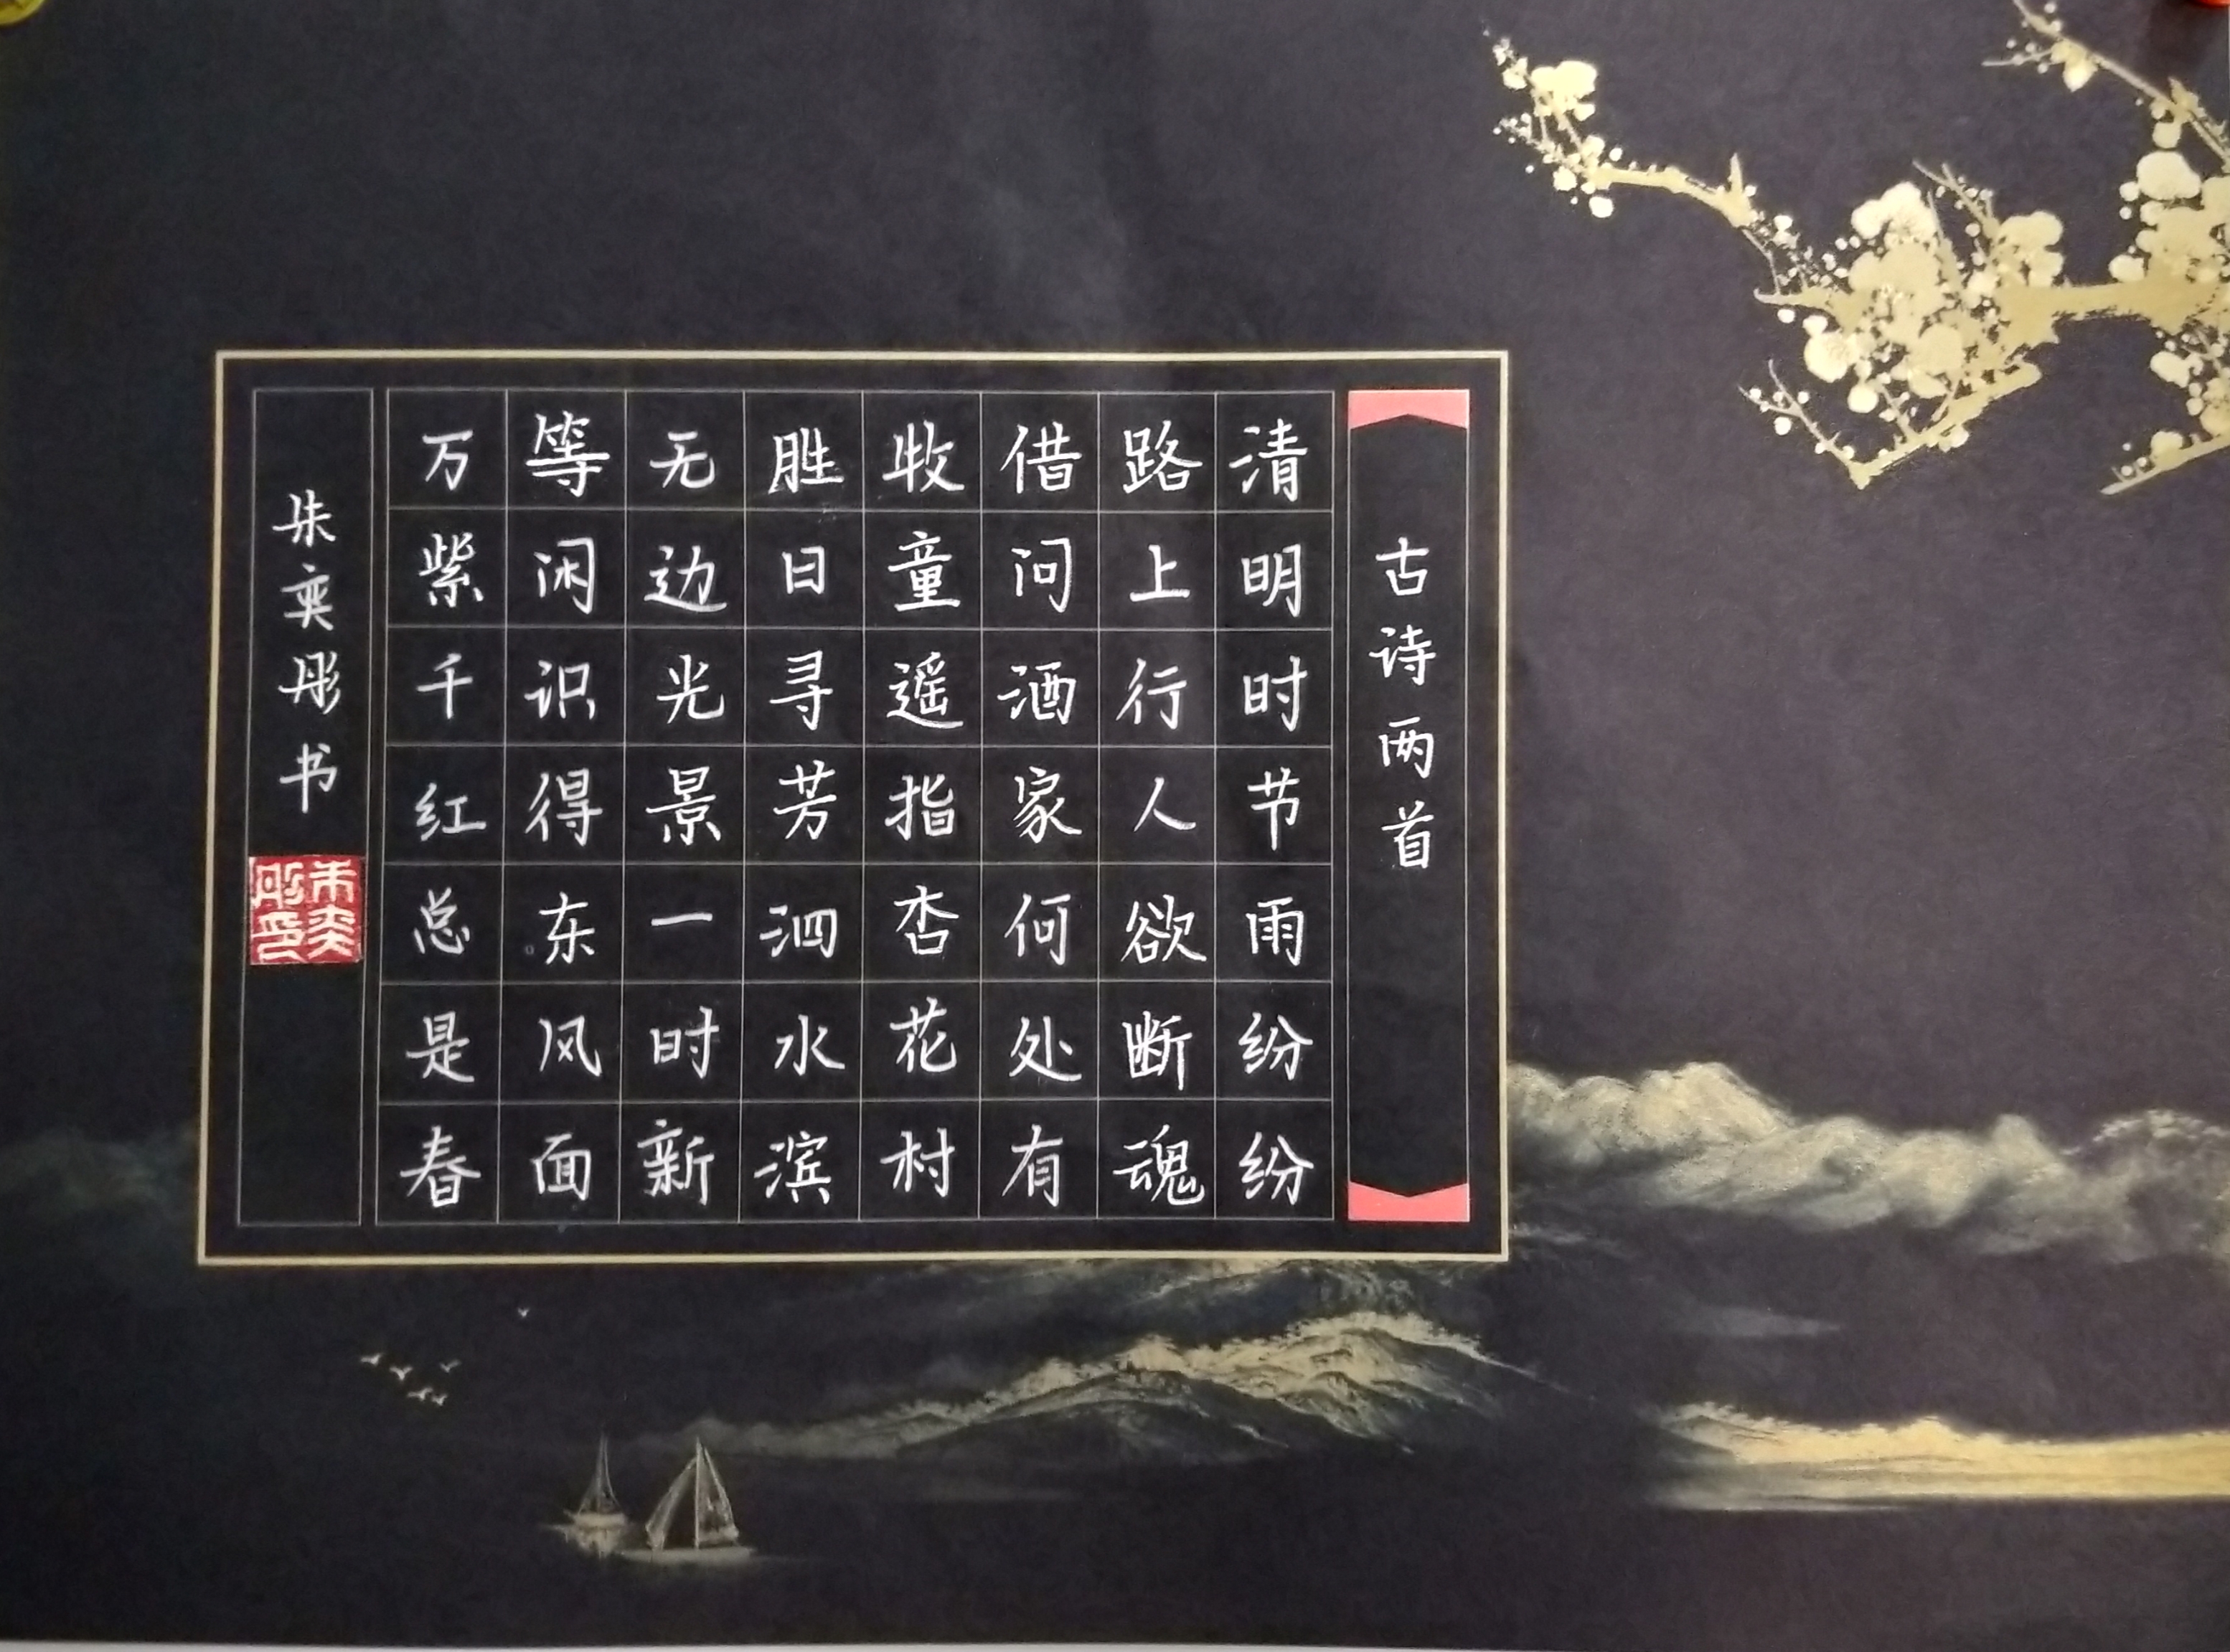 古诗两首
清明时节雨纷纷
路上行人欲断魂
借问酒家何处有
牧童遥指杏花村
胜日寻芳泗水滨
无边光景一时新
等闲识得东风面
万紫千红总是春
朱奕彤书
朱奕彤印